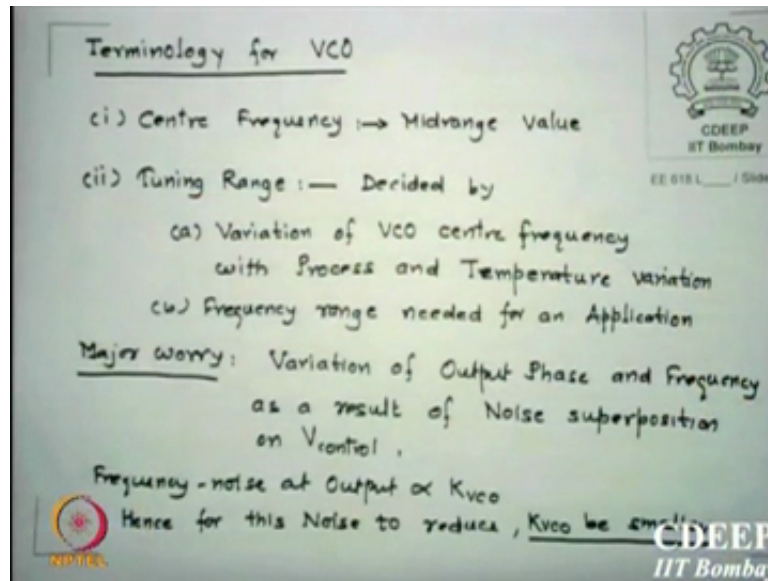 Terminology for VCO
(i) Centre Frequency :→ Midrange Value
CDEEP
IIT Bombay
EE 618 L____ / Slide
(ii) Tuning Range :— Decided by
(a) Variation of VCO centre frequency
with Process and Temperature variation
(b) Frequency range needed for an Application
Major worry : Variation of Output Phase and Frequency
as a result of Noise superposition
on Vcontrol .
Frequency - noise at Output ∝ Kvco
Hence for this Noise to reduce , Kvco be smaller
NPTEL
CDEEP
IIT Bombay